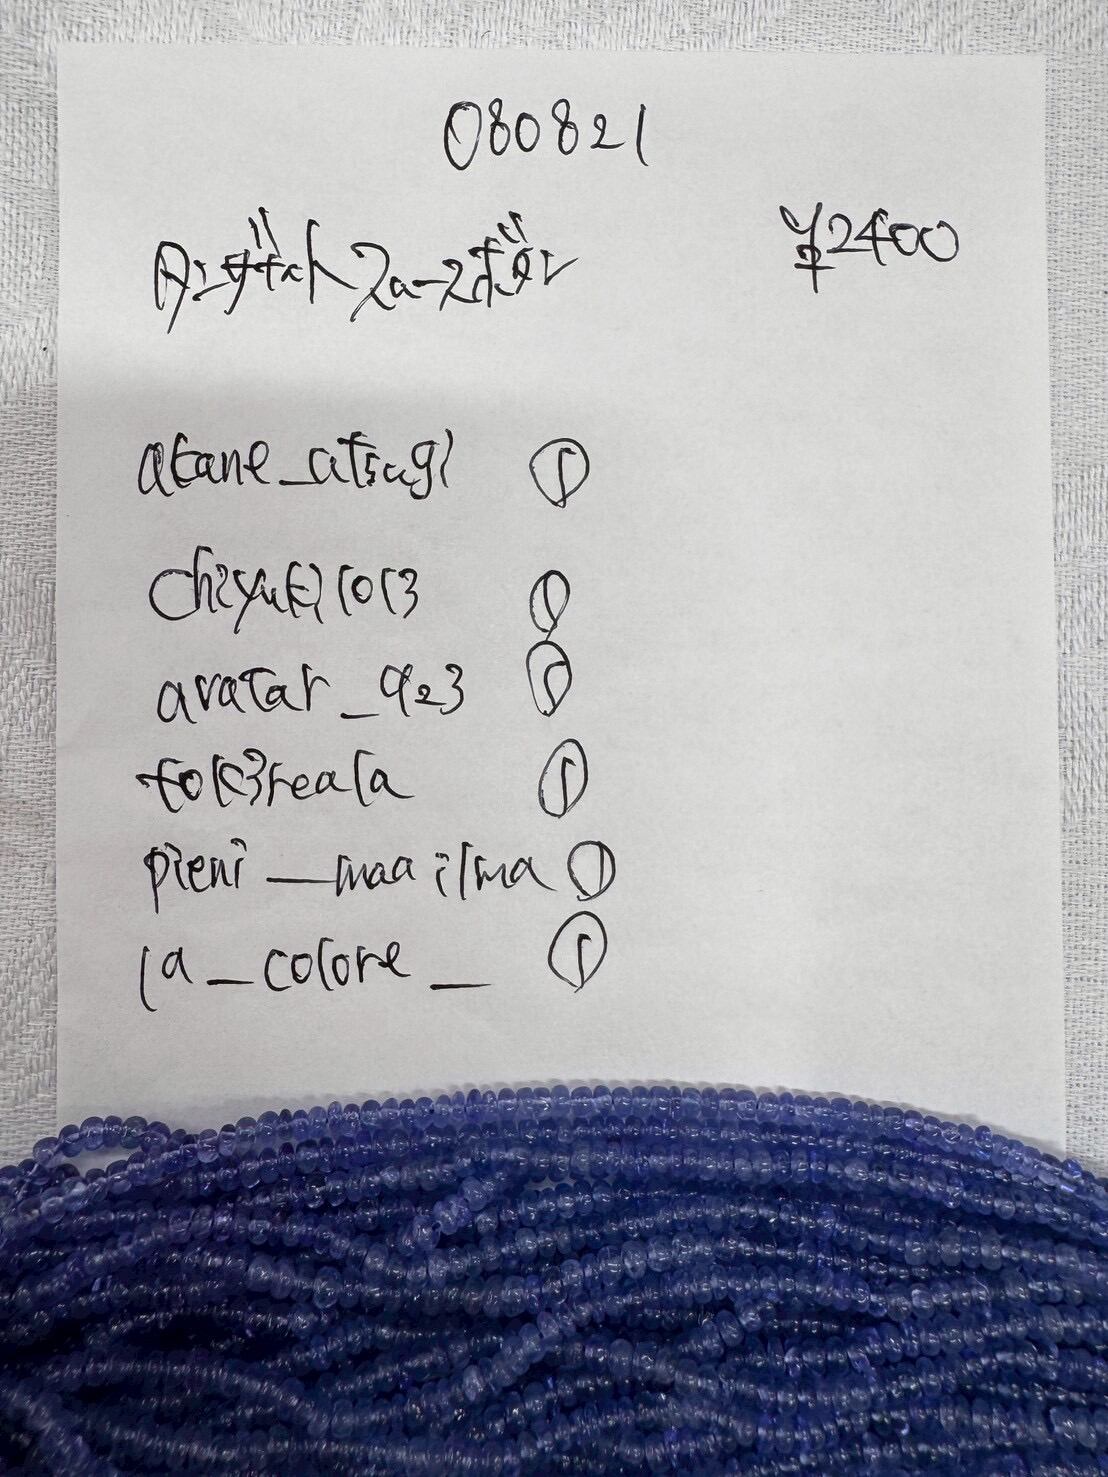 080821
タンザナイト スムースボタン ¥2400
akane_atsugi ①
chiyuki1013 ①
avatar_923 ①
tok3reala ①
pieni_maailma ①
la_colore_ ①